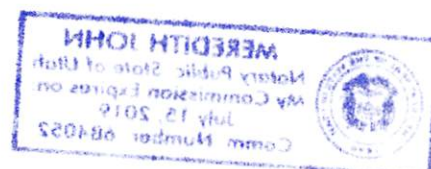 MEREDITH JOHN
Notary Public State of Utah
My Commission Expires on
July 15, 2019
Comm. Number 684052